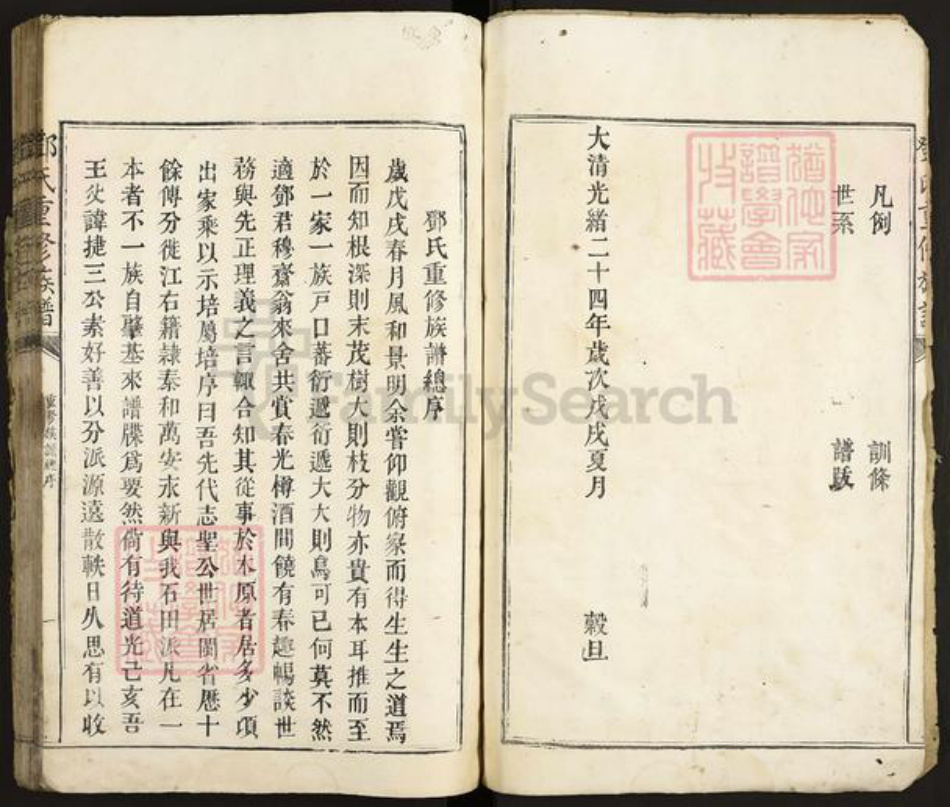 凡例 訓條
世系 譜跋
大清光緒二十四年歲次戊戌夏月 穀旦
鄧氏重修族譜總序
歲戊戌春月風和景明余嘗仰觀俯察而得生生之道焉
因而知根深則末茂樹大則枝分物亦貴有本耳推而至
於一家一族戸口蕃衍遞衍遞大大則烏可已何莫不然
適鄧君穆齋翁來舍共賞春光樽酒間饒有春趣暢談世
務與先正理義之言輙合知其從事於木原者居多少頃
出家乘以示培屬培序曰吾先代志聖公世居閩省歷十
餘傳分徙江右籍隸泰和萬安永新與我石田派凡在一
本者不一族自肇基來譜牒爲要然尙有待道光己亥吾
王父諱捷三公素好善以分派源遠散軼日久思有以收
鄧氏重修族譜
重修族譜總序
FamilySearch